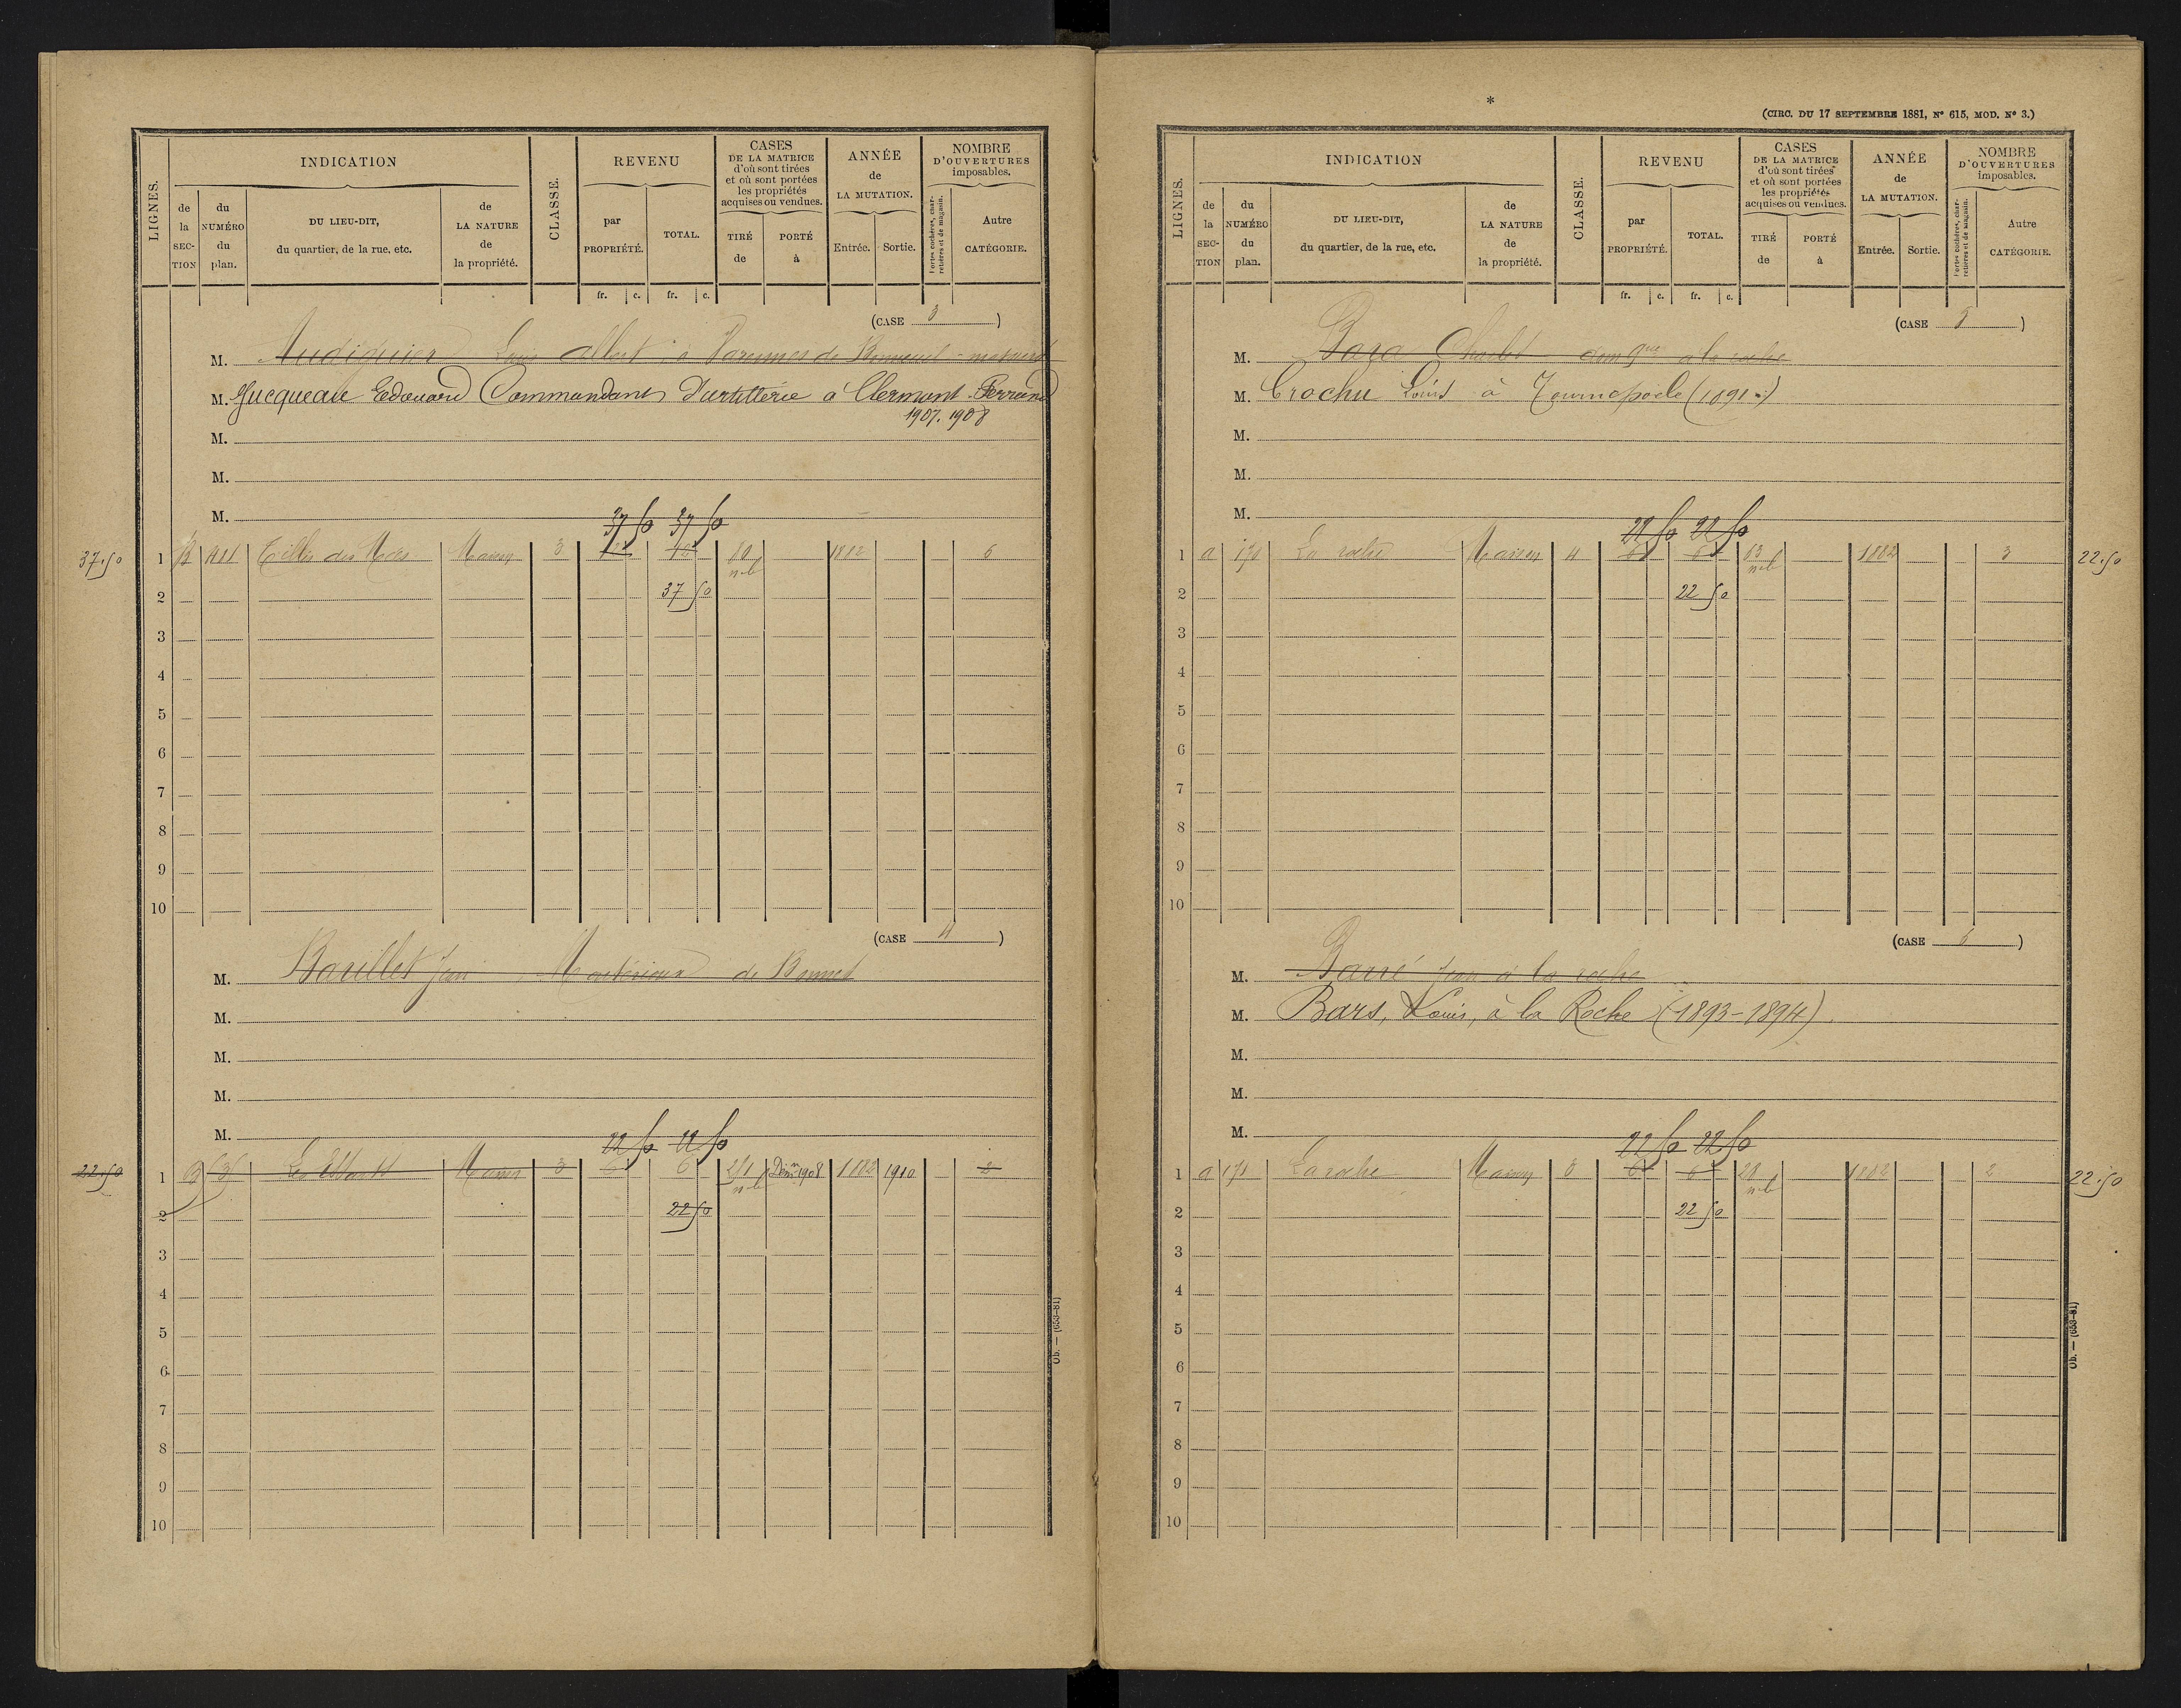 LIGNES.
INDICATION
de la SECTION
du NUMÉRO du plan.
DU LIEU-DIT, du quartier, de la rue, etc.
de LA NATURE de la propriété.
CLASSE.
REVENU
par PROPRIÉTÉ.
TOTAL.
fr. c. fr. c.
CASES DE LA MATRICE d'où sont tirées et où sont portées les propriétés acquises ou vendues.
TIRÉ de
PORTÉ à
ANNÉE de LA MUTATION.
Entrée. Sortie.
NOMBRE D'OUVERTURES imposables.
Portes cochères, charretières et de magasin.
Autre CATÉGORIE.
(CASE 3)
M. Audiguier Louis Albert à Varennes de
M. Edouard Commandant d'artillerie à Clermont-Ferrand
1907. 1908
M.
M.
M.
37 50 37 50
37.50 1 B Maison 3 12 12 80 1882 6
n.b
2 37 50
3
4
5
6
7
8
9
10
(CASE 4)
M. Barillet Jean de Bonnet
M.
M.
M.
M.
22 50 22 50
22.50 1 B Maison 3 6 6 Dém 1908 1882 1910 2
n.b
2 22 50
3
4
5
6
7
8
9
10
Ob. — (653-81)
*
(CIRC. DU 17 SEPTEMBRE 1881, Nº 615, MOD. Nº 3.)
LIGNES.
INDICATION
de la SECTION
du NUMÉRO du plan.
DU LIEU-DIT, du quartier, de la rue, etc.
de LA NATURE de la propriété.
CLASSE.
REVENU
par PROPRIÉTÉ.
TOTAL.
fr. c. fr. c.
CASES DE LA MATRICE d'où sont tirées et où sont portées les propriétés acquises ou vendues.
TIRÉ de
PORTÉ à
ANNÉE de LA MUTATION.
Entrée. Sortie.
NOMBRE D'OUVERTURES imposables.
Portes cochères, charretières et de magasin.
Autre CATÉGORIE.
(CASE 5)
M. Bara Charles dom que a la roche
M. Crochu Louis à
M.
M.
M.
22 50 22 50
1 a 170 La roche Maison 4 6 6 63 1882 3 22.50
n.b
2 22 50
3
4
5
6
7
8
9
10
(CASE 6)
M. Barré Jean à la roche
M. Bars, Louis, à la Roche (1893-1894)
M.
M.
M.
22 50 22 50
1 a 171 La roche Maison 3 6 6 28 1882 2 22.50
n.b
2 22 50
3
4
5
6
7
8
9
10
Ob. — (653-81)